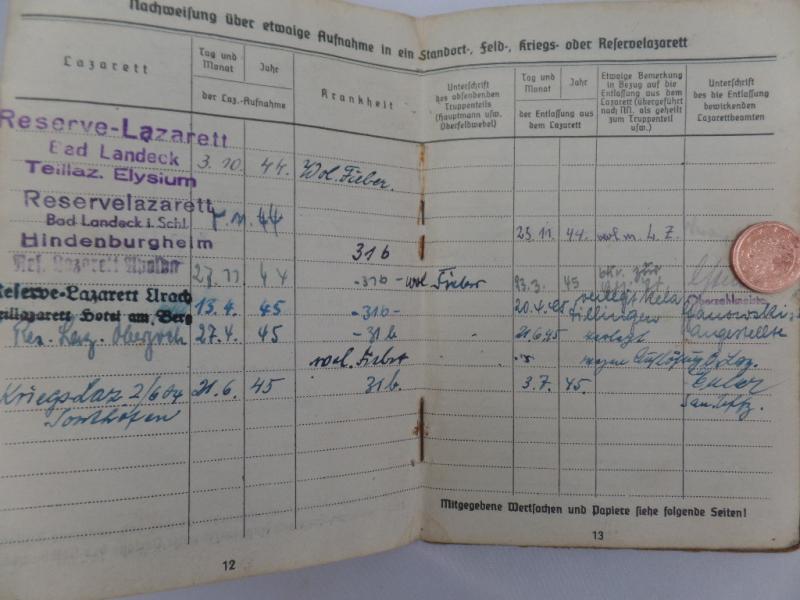 Nachweisung über etwaige Aufnahme in ein Standort-, Feld-, Kriegs- oder Reservelazarett
Lazarett
Tag und Monat
Jahr
der Laz.-Aufnahme
Krankheit
Unterschrift
des absendenden
Truppenteils
(Hauptmann usw.
Oberfeldwebel)
Tag und
Monat
Jahr
der Entlassung aus
dem Lazarett
Etwaige Bemerkung
in Bezug auf die
Entlassung aus dem
Lazarett (übergeführt
nach NN. als geheilt
zum Truppenteil
usw.)
Unterschrift
des die Entlassung
bewirkenden
Lazarettbeamten
Reserve-Lazarett
Bad Landeck
Teillaz. Elysium
3. 10. 44. Wol. Fieber.
Reservelazarett
Bad Landeck i. Schl.
Hindenburgheim
44
31b
23. 11. 44. wol m. L. Z.
Res. Lazarett
27. 11 44 -31b- wol. Fieber
3. 45
Reserve-Lazarett Urach
Teillazarett Hotel am Berg
13. 4. 45 -31b-
20. 4. 45 verlegt
27. 4. 45 -31b
21.6.45 verlegt
wol. Fieber
wegen
Kriegslaz 2/604 21. 6. 45 31b
3. 7. 45.
Sonthofen
Mitgegebene Wertsachen und Papiere siehe folgende Seiten!
12
13